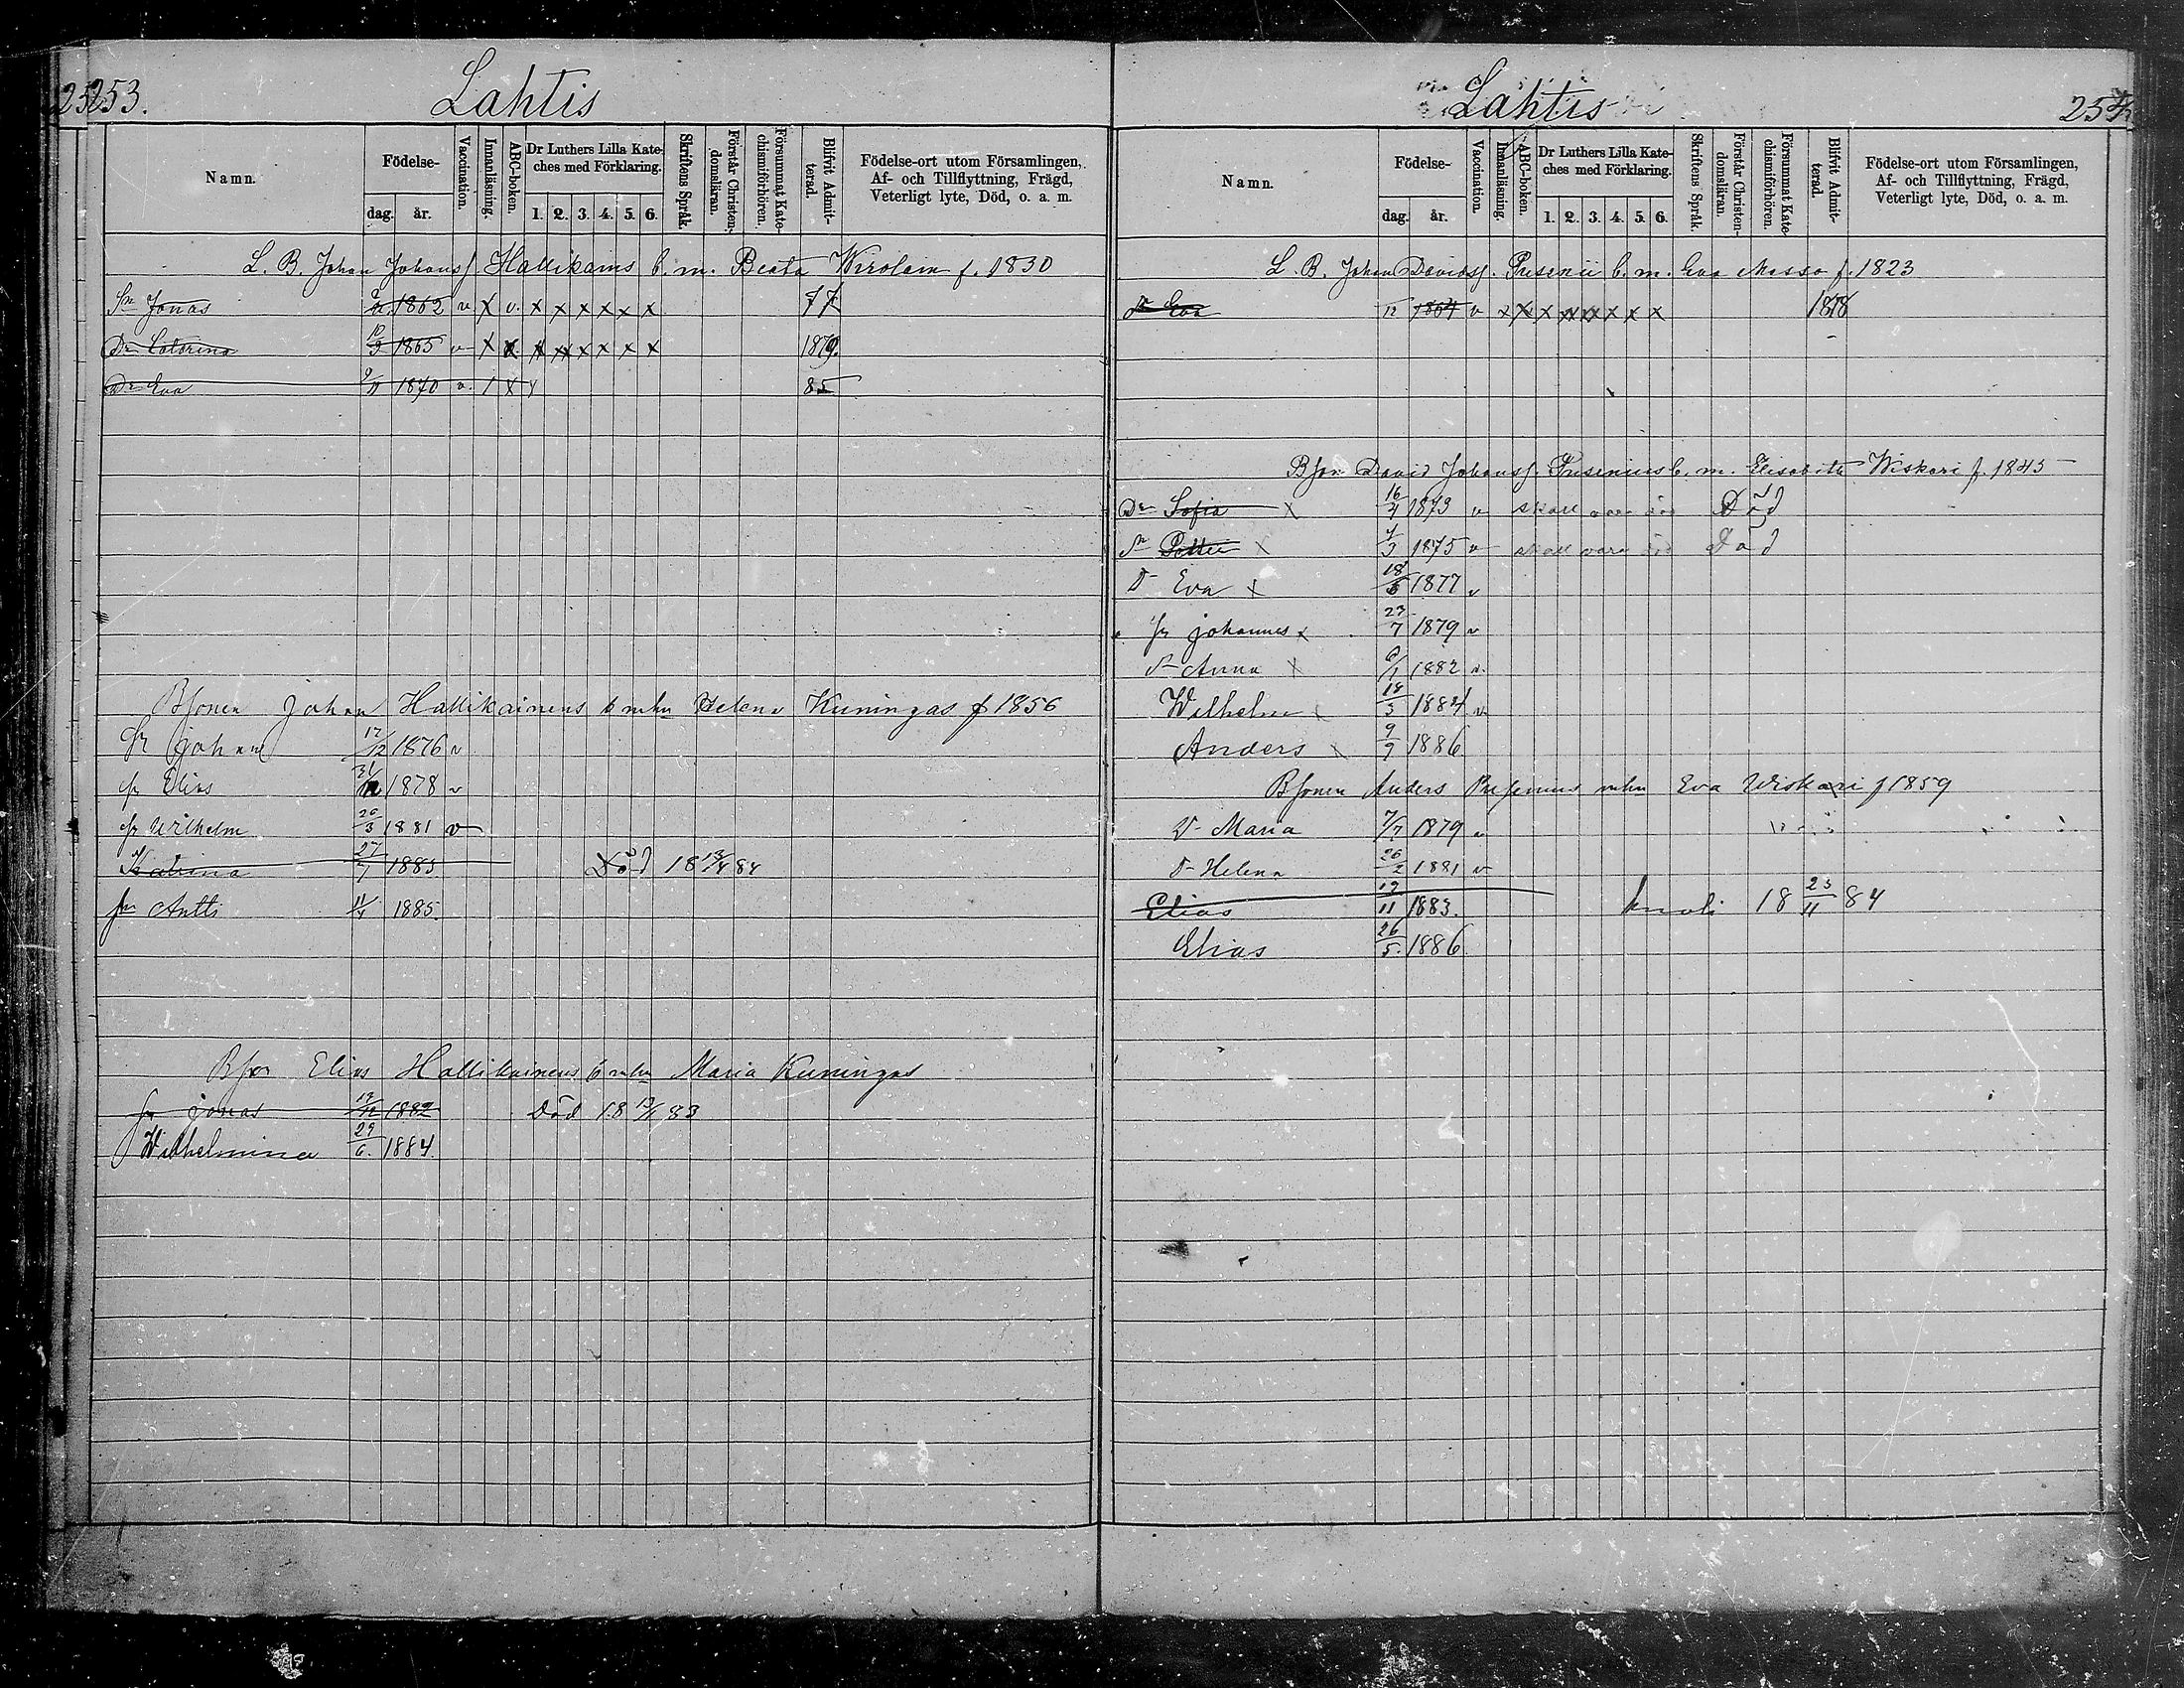 253.
Lahtis
Namn.
Födelse-
dag. år.
Vaccination.
Innanläsning.
ABC-boken.
Dr Luthers Lilla Kate-
ches med Förklaring.
1. 2. 3. 4. 5. 6.
Skriftens Språk.
Förstår Christen-
domsläran.
Försummat Kate-
chismiförhören.
Blifvit Admit-
terad.
Födelse-ort utom Församlingen,
Af- och Tillflyttning, Frägd,
Veterligt lyte, Död, o. a. m.
L. B. Johan Johanss. Hallikains b. m. Beata Wirolain f. 1830
Sn Jonas 1862 v x v. x x x x x x 77
Dr Catarina 10/3 1865 v x x x x x x x 1879.
Dr Eva 9/11 1870 v. 85
Bsonen Johan Hallikainens b mhu Helena Kuningas f 1856
Sn Johan 17/12 1876 v
Sn Elias 31/12 1878 v
Sn Wilhelm 20/3 1881 v
Katrina 27/7 1883 Död 18 84
Sn Antti 11/4 1885.
Bson Elias Hallikainens b mhu Maria Kuningas
Sn Jonas 19/12 1882 Död 18 83
Wilhelmina 29/6. 1884.
Lahtis
254
Namn.
Födelse-
dag. år.
Vaccination.
Innanläsning.
ABC-boken.
Dr Luthers Lilla Kate-
ches med Förklaring.
1. 2. 3. 4. 5. 6.
Skriftens Språk.
Förstår Christen-
domsläran.
Försummat Kate-
chismiförhören.
Blifvit Admit-
terad.
Födelse-ort utom Församlingen,
Af- och Tillflyttning, Frägd,
Veterligt lyte, Död, o. a. m.
L. B. Johan Davidss. Pusenii b. m. Eva Masso f. 1823
Dr Eva 12 1864 v x x x x x x x x 1878
Bson David Johanss. Pusenius b. m. Elisabeth Wiskari f. 1845
Dr Sofia x 16/4 1873 v skall vara död Död
Sn Petter x 4/3 1875 v skall vara död Död
D Eva x 18/5 1877 v
Sn Johannes x 23/7 1879 v
D Anna x 6/1 1882 v.
Wilhelm x 18/3 1884 v
Anders x 9/9 1886
Bsonen Anders Pusenius mhu Eva Wiskari f 1859
D Maria 7/7 1879 v
D Helena 26/2 1881 v
Elias 19/11 1883. kuoli 18 23/11 84
Elias 26/5. 1886.